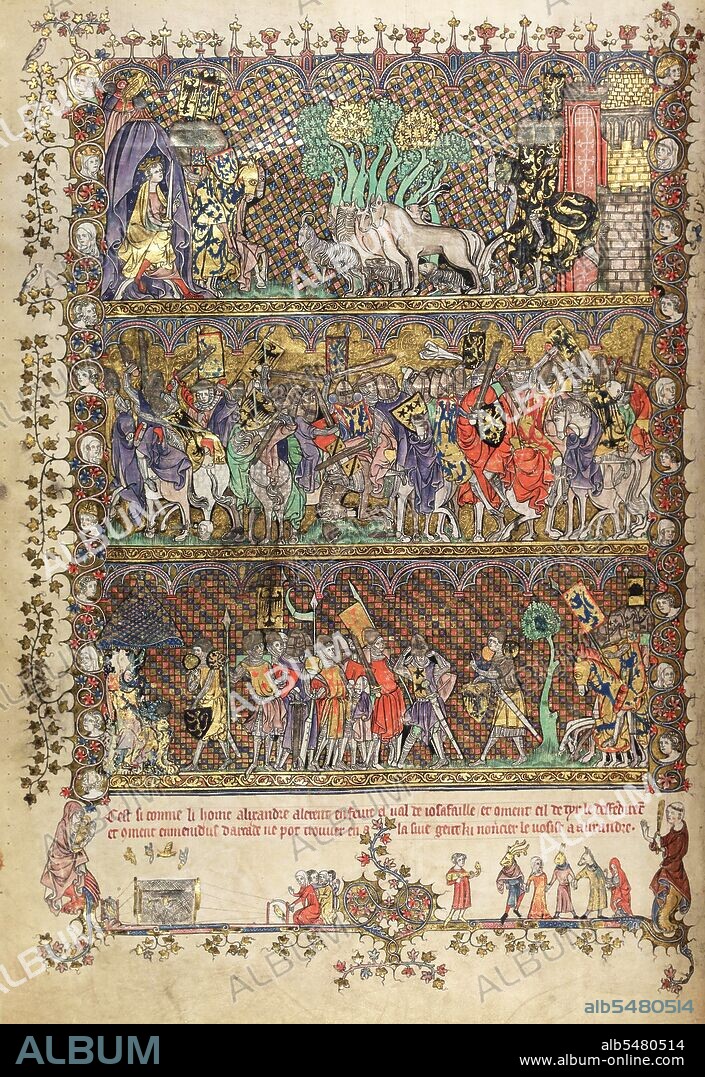 Cest si comme li home alixandre alerent en feurre el ual de iosafaille et coment cil de tyr le desfedirent
et coment emenidus darcade ne pot trouuer en a la siue gent ki noncier le uosist a alixandre.
ALBUM
alb5480514
ALBUM
alb5480514
www.album-online.com